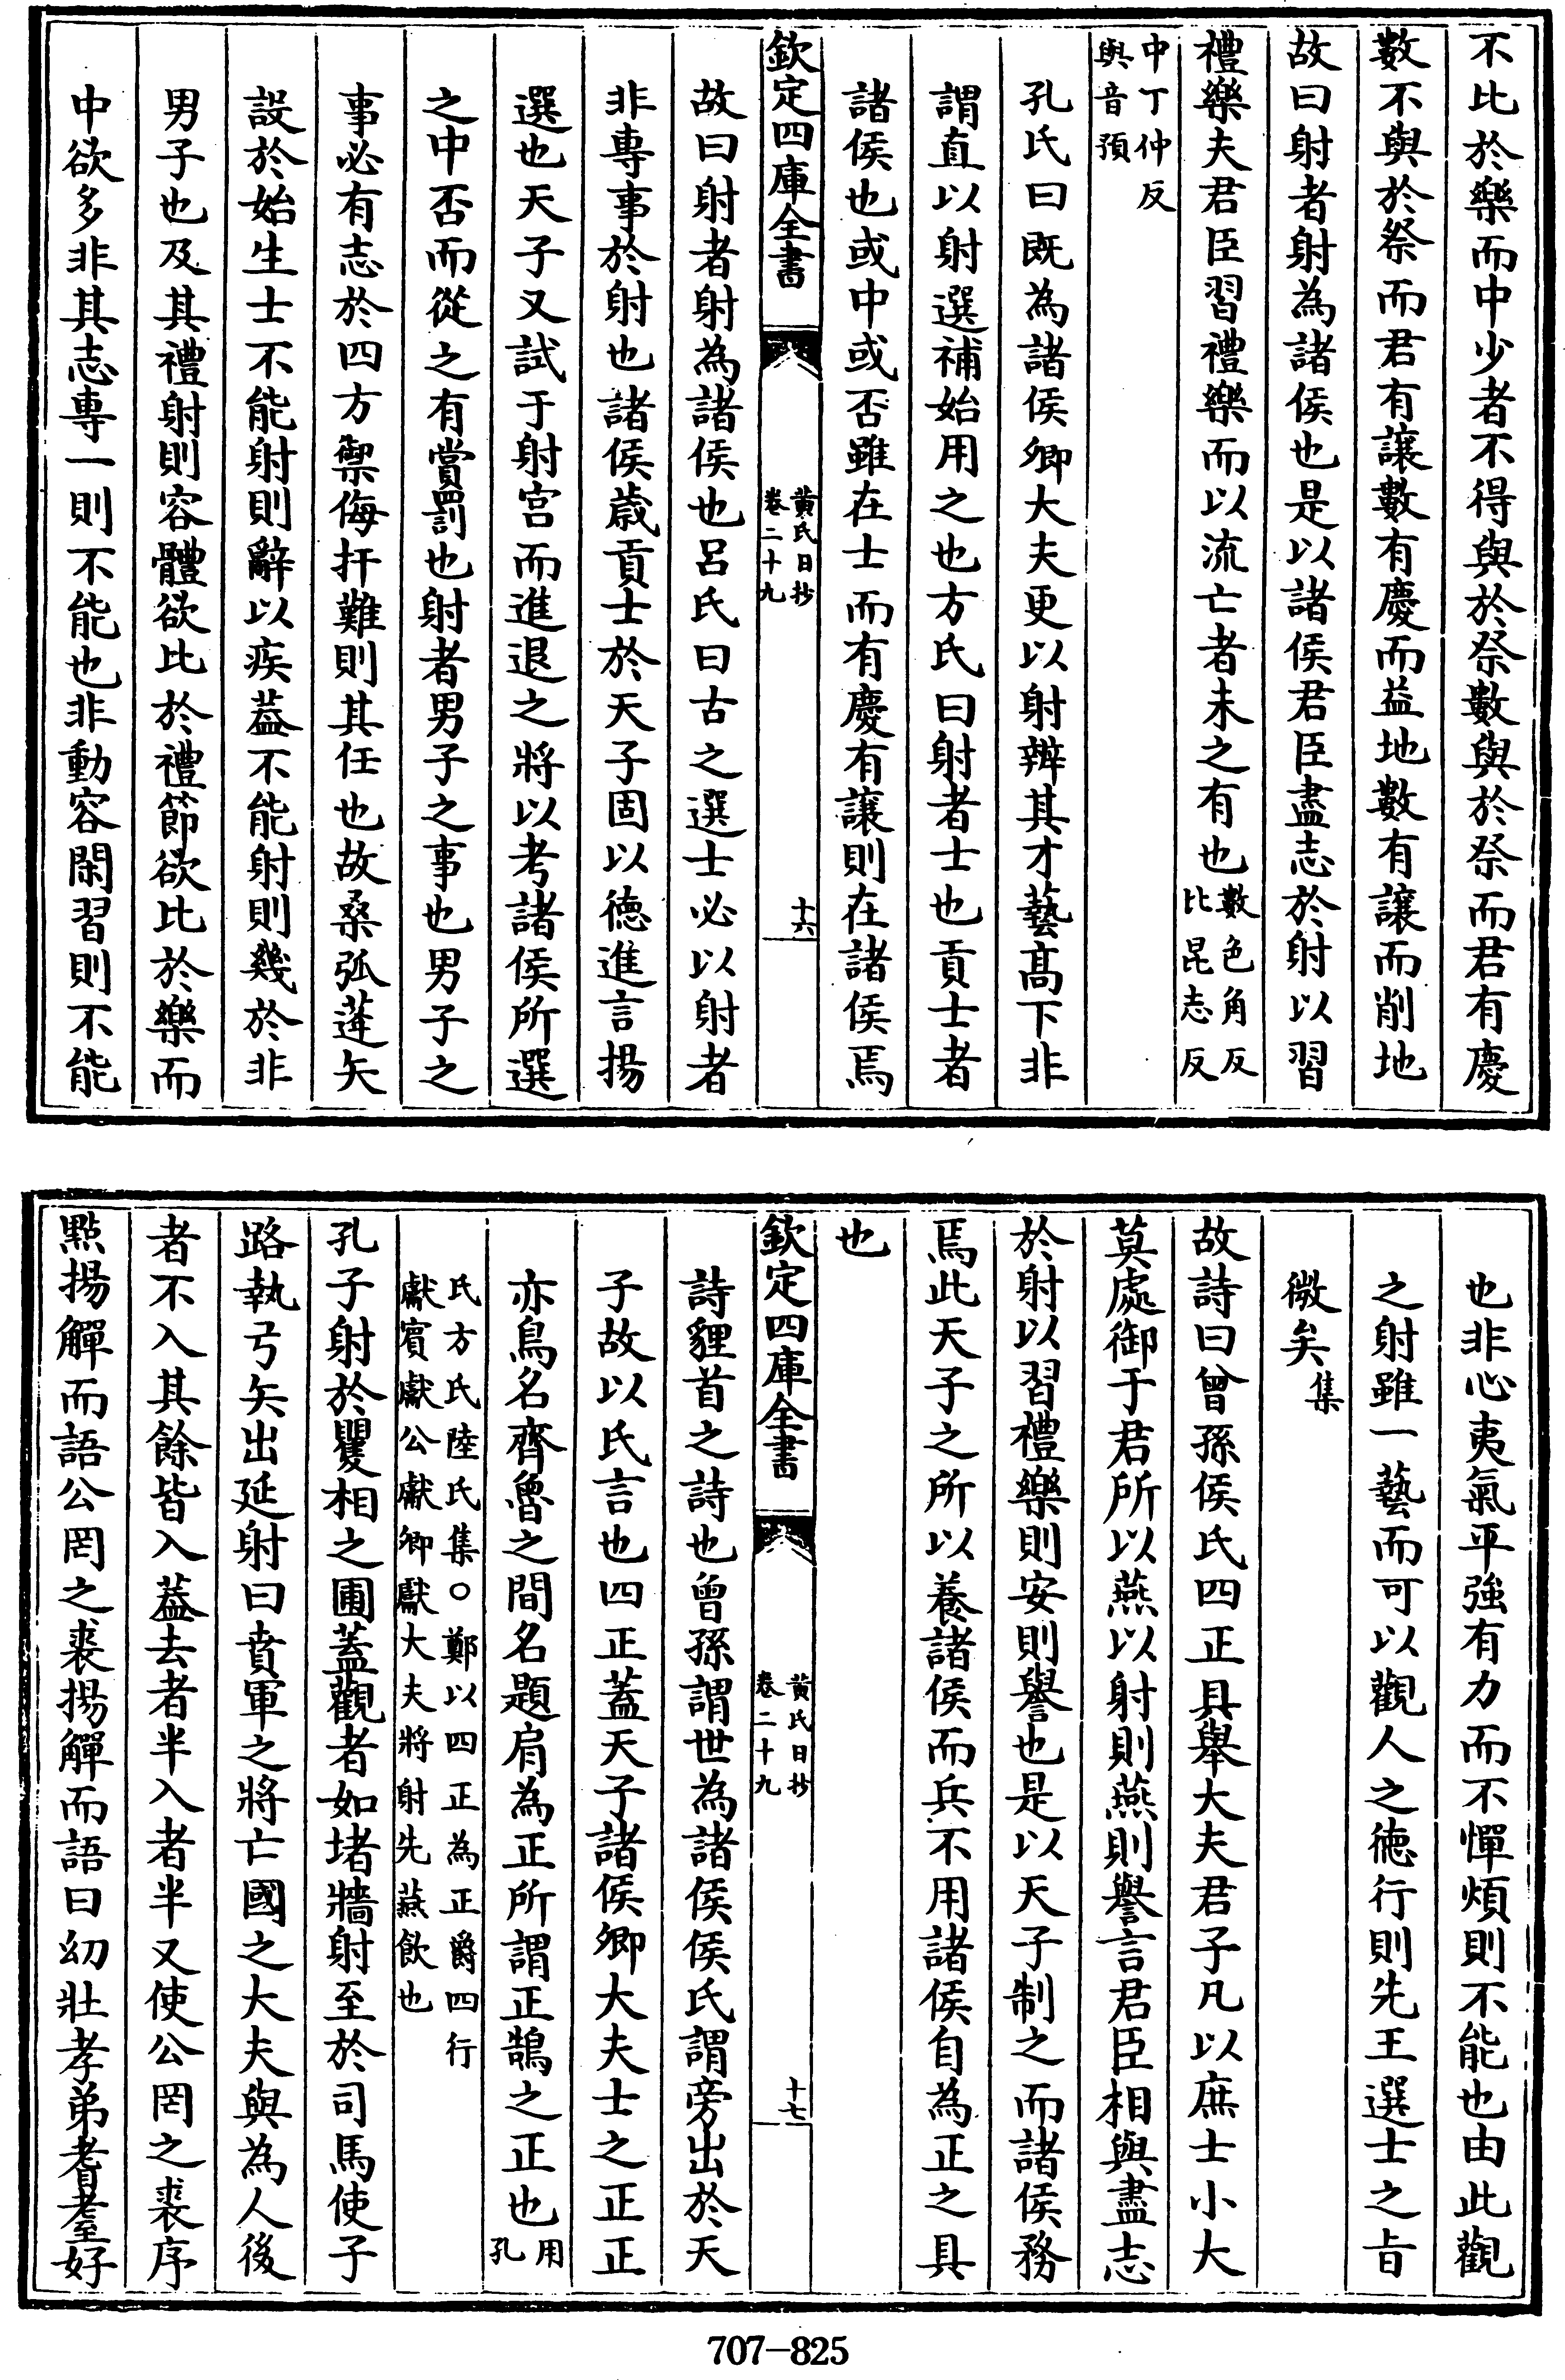 不比於樂而中少者不得與於祭數與於祭而君有慶
數不與於祭而君有讓數有慶而益地數有讓而削地
故曰射者射為諸侯也是以諸侯君臣盡志於射以習
禮樂夫君臣習禮樂而以流亡者未之有也數色角反比昆志反
中丁仲反與音預
孔氏曰既為諸侯卿大夫更以射辨其才藝髙下非
謂直以射選補始用之也方氏曰射者士也貢士者
諸侯也或中或否雖在士而有慶有讓則在諸侯焉
欽定四庫全書 黃氏日抄卷二十九 十六
故曰射者射為諸侯也呂氏曰古之選士必以射者
非專事於射也諸侯歲貢士於天子固以徳進言揚
選也天子又試于射宮而進退之將以考諸侯所選
之中否而從之有賞罰也射者男子之事也男子之
事必有志於四方禦侮扞難則其任也故桑弧蓬矢
設於始生士不能射則辭以疾葢不能射則幾於非
男子也及其禮射則容體欲比於禮節欲比於樂而
中欲多非其志專一則不能也非動容閑習則不能
也非心夷氣平強有力而不憚煩則不能也由此觀
之射雖一藝而可以觀人之徳行則先王選士之㫖
微矣集
故詩曰曾孫侯氏四正具舉大夫君子凡以庶士小大
莫處御于君所以燕以射則燕則譽言君臣相與盡志
於射以習禮樂則安則譽也是以天子制之而諸侯務
焉此天子之所以養諸侯而兵不用諸侯自為正之具
也
欽定四庫全書 黃氏日抄卷二十九 十七
詩貍首之詩也曾孫謂世為諸侯侯氏謂旁出於天
子故以氏言也四正蓋天子諸侯卿大夫士之正正
亦鳥名齊魯之間名題肩為正所謂正鵠之正也用孔
氏方氏陸氏集○鄭以四正為正爵四行獻賓獻公獻卿獻大夫將射先燕飲也
孔子射於矍相之圃蓋觀者如堵牆射至於司馬使子
路執弓矢出延射曰賁軍之將亡國之大夫與為人後
者不入其餘皆入葢去者半入者半又使公罔之裘序
㸃揚觶而語公罔之裘揚觶而語曰幼壯孝弟耆耋好
707-825